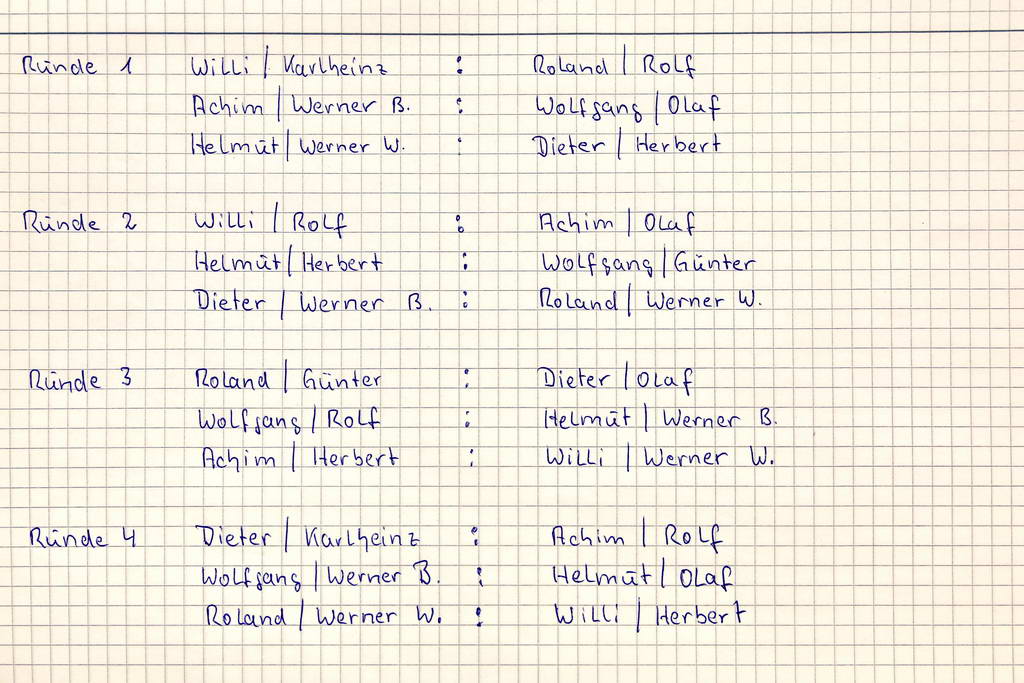 Runde 1 Willi / Karlheinz : Roland / Rolf
Achim / Werner B. : Wolfgang / Olaf
Helmut / Werner W. : Dieter / Herbert
Runde 2 Willi / Rolf : Achim / Olaf
Helmut / Herbert : Wolfgang / Günter
Dieter / Werner B. : Roland / Werner W.
Runde 3 Roland / Günter : Dieter / Olaf
Wolfgang / Rolf : Helmut / Werner B.
Achim / Herbert : Willi / Werner W.
Runde 4 Dieter / Karlheinz : Achim / Rolf
Wolfgang / Werner B. : Helmut / Olaf
Roland / Werner W. : Willi / Herbert